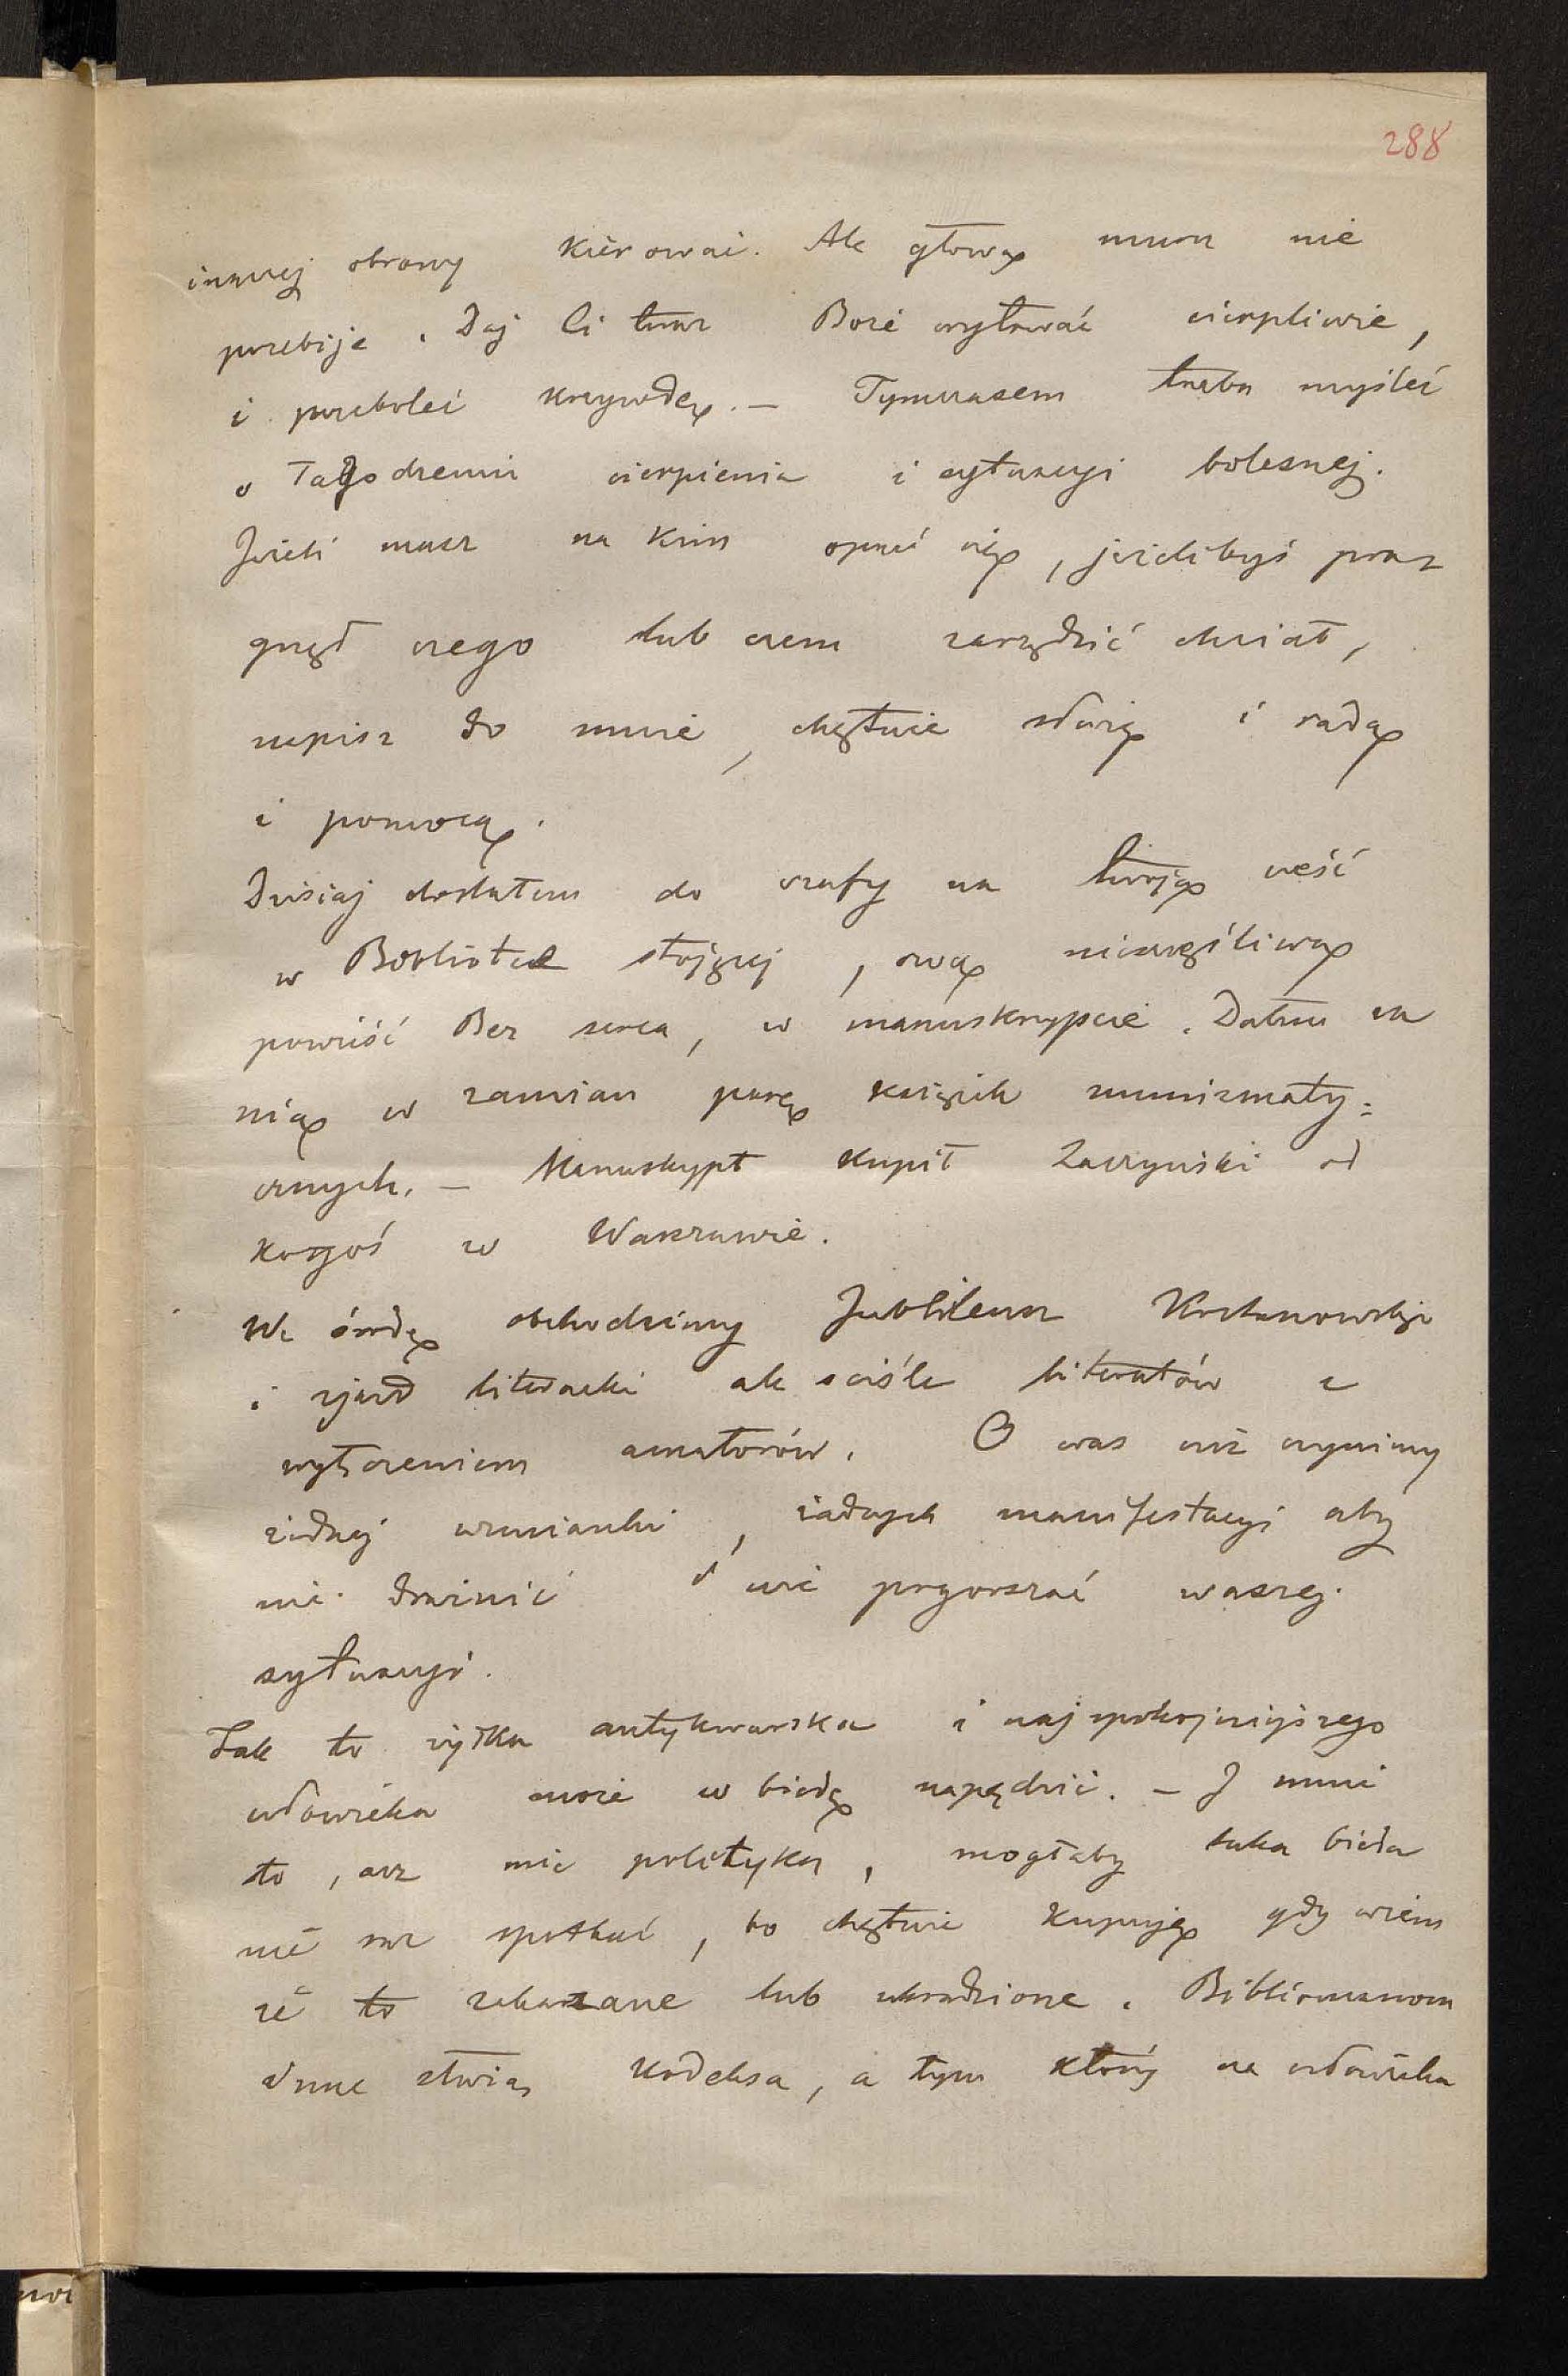 288
inaczej obrony kierować. Ale głową muru nie
przebije. Daj Ci teraz Boże wytrwać cierpliwie,
i przeboleć krzywdę. — Tymczasem trzeba myśleć
o łagodzeniu cierpienia i sytuacyi bolesnej.
Jeżeli masz na kim oprzeć się, jeżelibyś prag
gnął czego lub czem zarządzić chciał,
napisz do mnie, chętnie służę i radą
i pomocą.
Dzisiaj dostałem do szafy na twoją cześć
w Bibliotece stojącej, ową nieszczęśliwą
powieść Bez serca, w manuskrypcie. Dałem za
nią w zamian parę książek numizmaty=
cznych. — Manuskrypt kupił Zaczyński od
kogoś w Warszawie.
We środę obchodzimy Jubileusz Kochanowskiego
i zjazd literacki ale ściśle literatów z
wyłączeniem amatorów. O was nie czynimy
żadnej wzmianki, żadnych manifestacyi aby
nie drażnić i nie pogorszać waszej
sytuacyi.
Tak to żyłka antykwarska i najspokojniejszego
człowieka może w biedę napędzić. — I mnie
to, acz nie polityka, mogłaby taka bieda
nie raz spotkać, bo chętnie kupuję gdy wiem
że to zakazane lub ukradzione. Bibliomanom
inne stwórz kodeksa, a tym który na człowieka